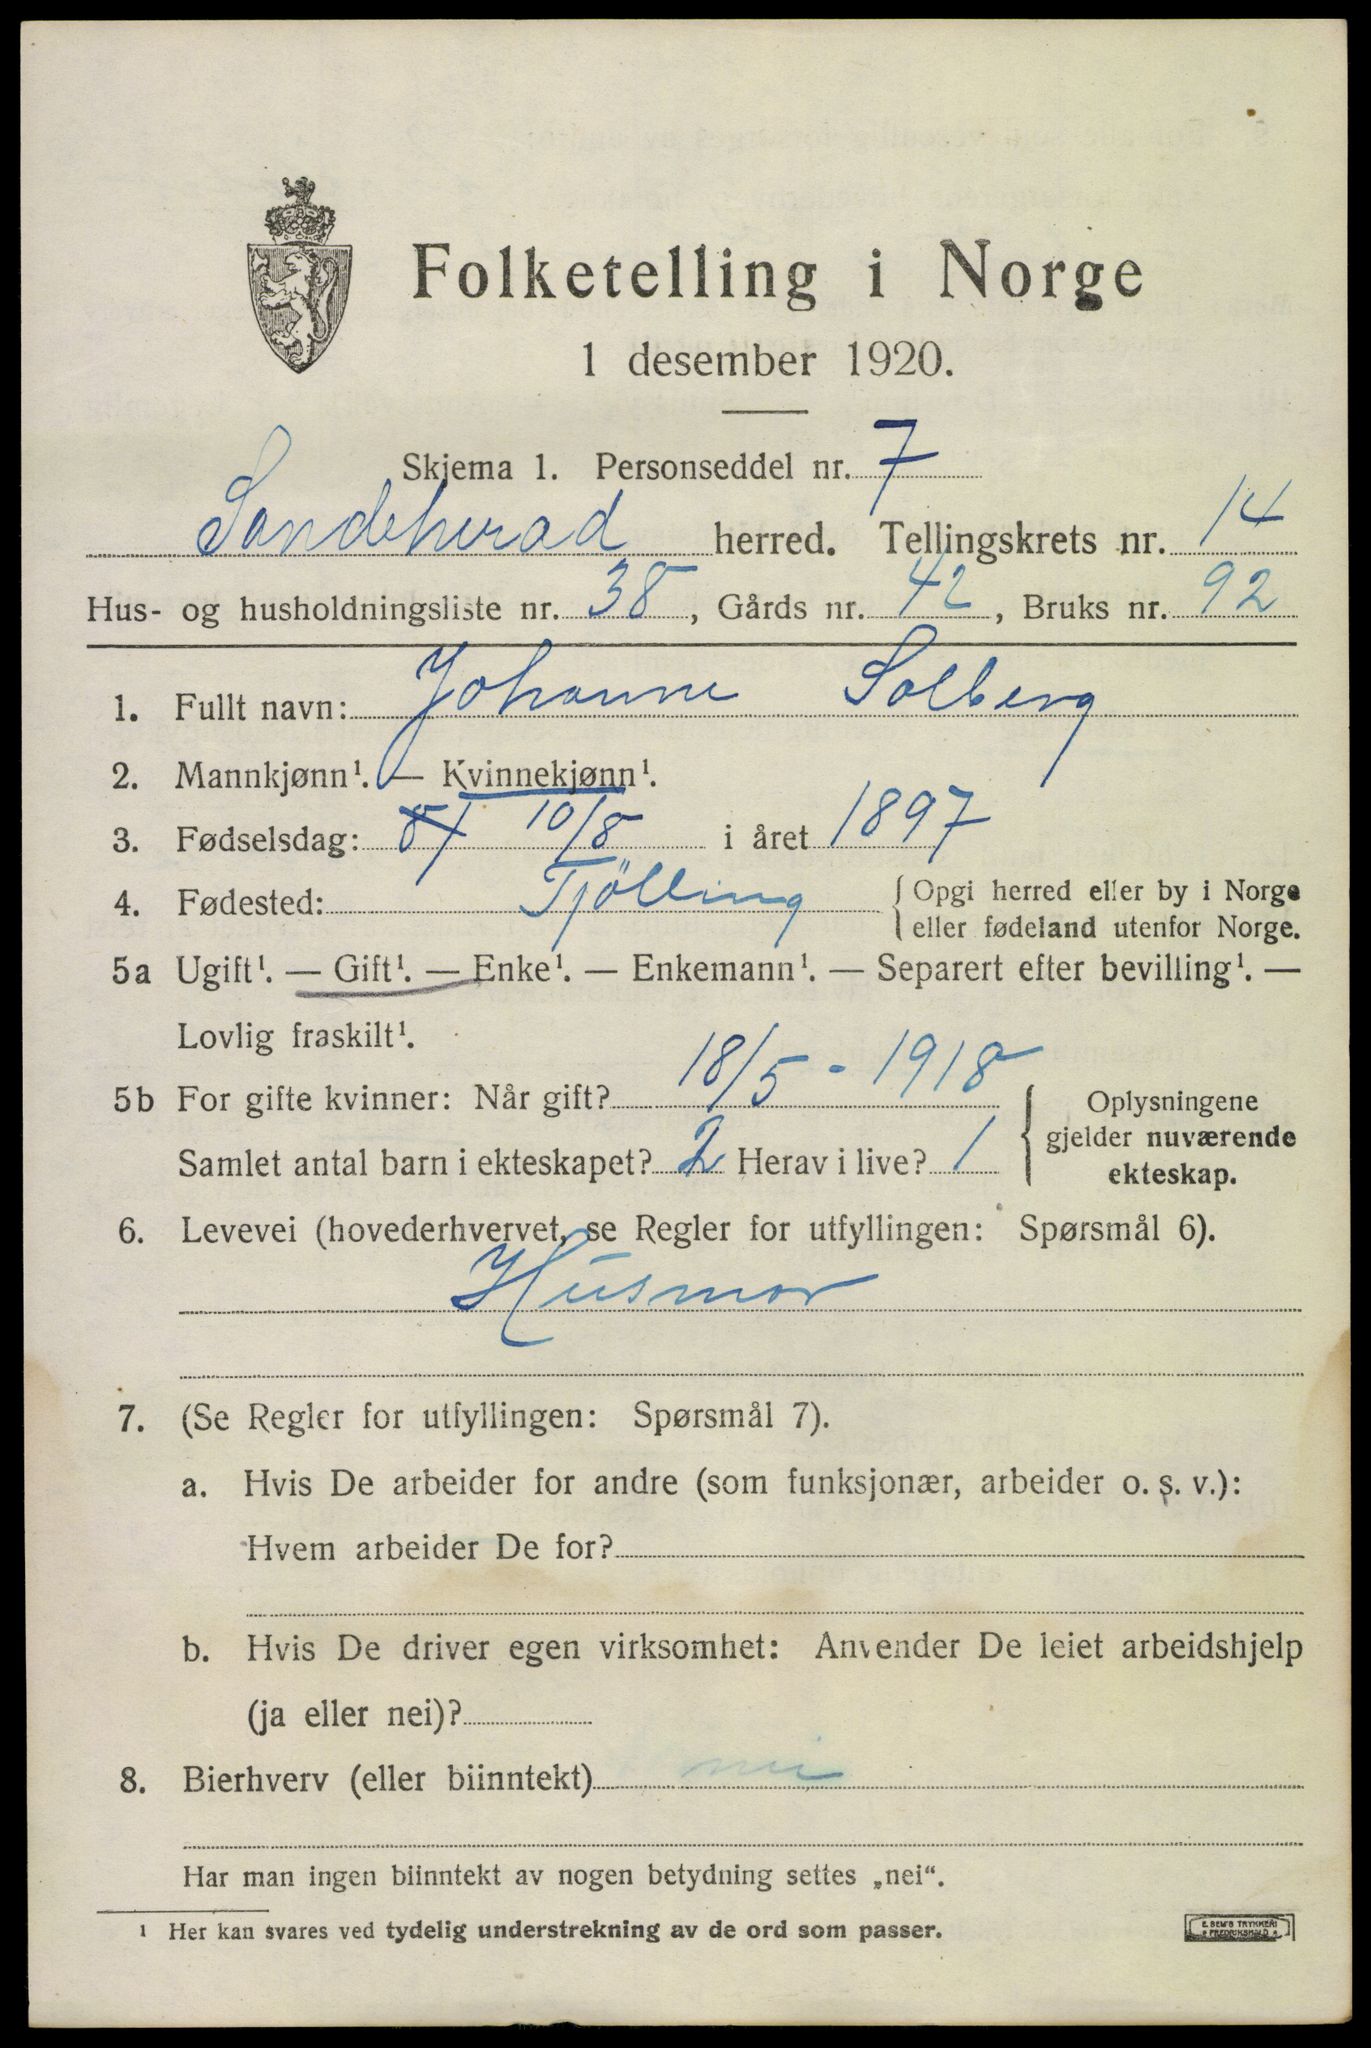 Folketelling i Norge
1 desember 1920.
Skjema 1. Personseddel nr. 7
Sandeherad herred. Tellingskrets nr. 14
Hus- og husholdningsliste nr. 38, Gårds nr. 42, Bruks nr. 92
1. Fullt navn: Johanne Solberg
2. Mannkjønn¹. — Kvinnekjønn¹.
3. Fødselsdag: 10/8 i året 1897
4. Fødested: Tjölling { Opgi herred eller by i Norge
eller fødeland utenfor Norge.
5a Ugift¹. — Gift¹. — Enke¹. — Enkemann¹. — Separert efter bevilling¹. —
Lovlig fraskilt¹.
5b For gifte kvinner: Når gift? 18/5 - 1918
Samlet antal barn i ekteskapet? 2 Herav i live? 1
Oplysningene
gjelder nuværende
ekteskap.
6. Levevei (hovederhvervet, se Regler for utfyllingen: Spørsmål 6).
Husmor
7. (Se Regler for utfyllingen: Spørsmål 7).
a. Hvis De arbeider for andre (som funksjonær, arbeider o. s. v.):
Hvem arbeider De for?
b. Hvis De driver egen virksomhet: Anvender De leiet arbeidshjelp
(ja eller nei)?
8. Bierhverv (eller biinntekt) nei
Har man ingen biinntekt av nogen betydning settes „nei“.
¹ Her kan svares ved tydelig understrekning av de ord som passer.
E. SEM'S TRYKKERI
FREDRIKSHALD